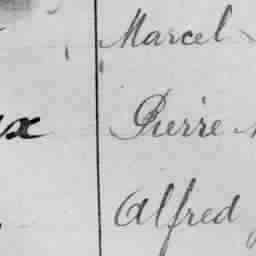 Marcel
x Pierre
Alfred